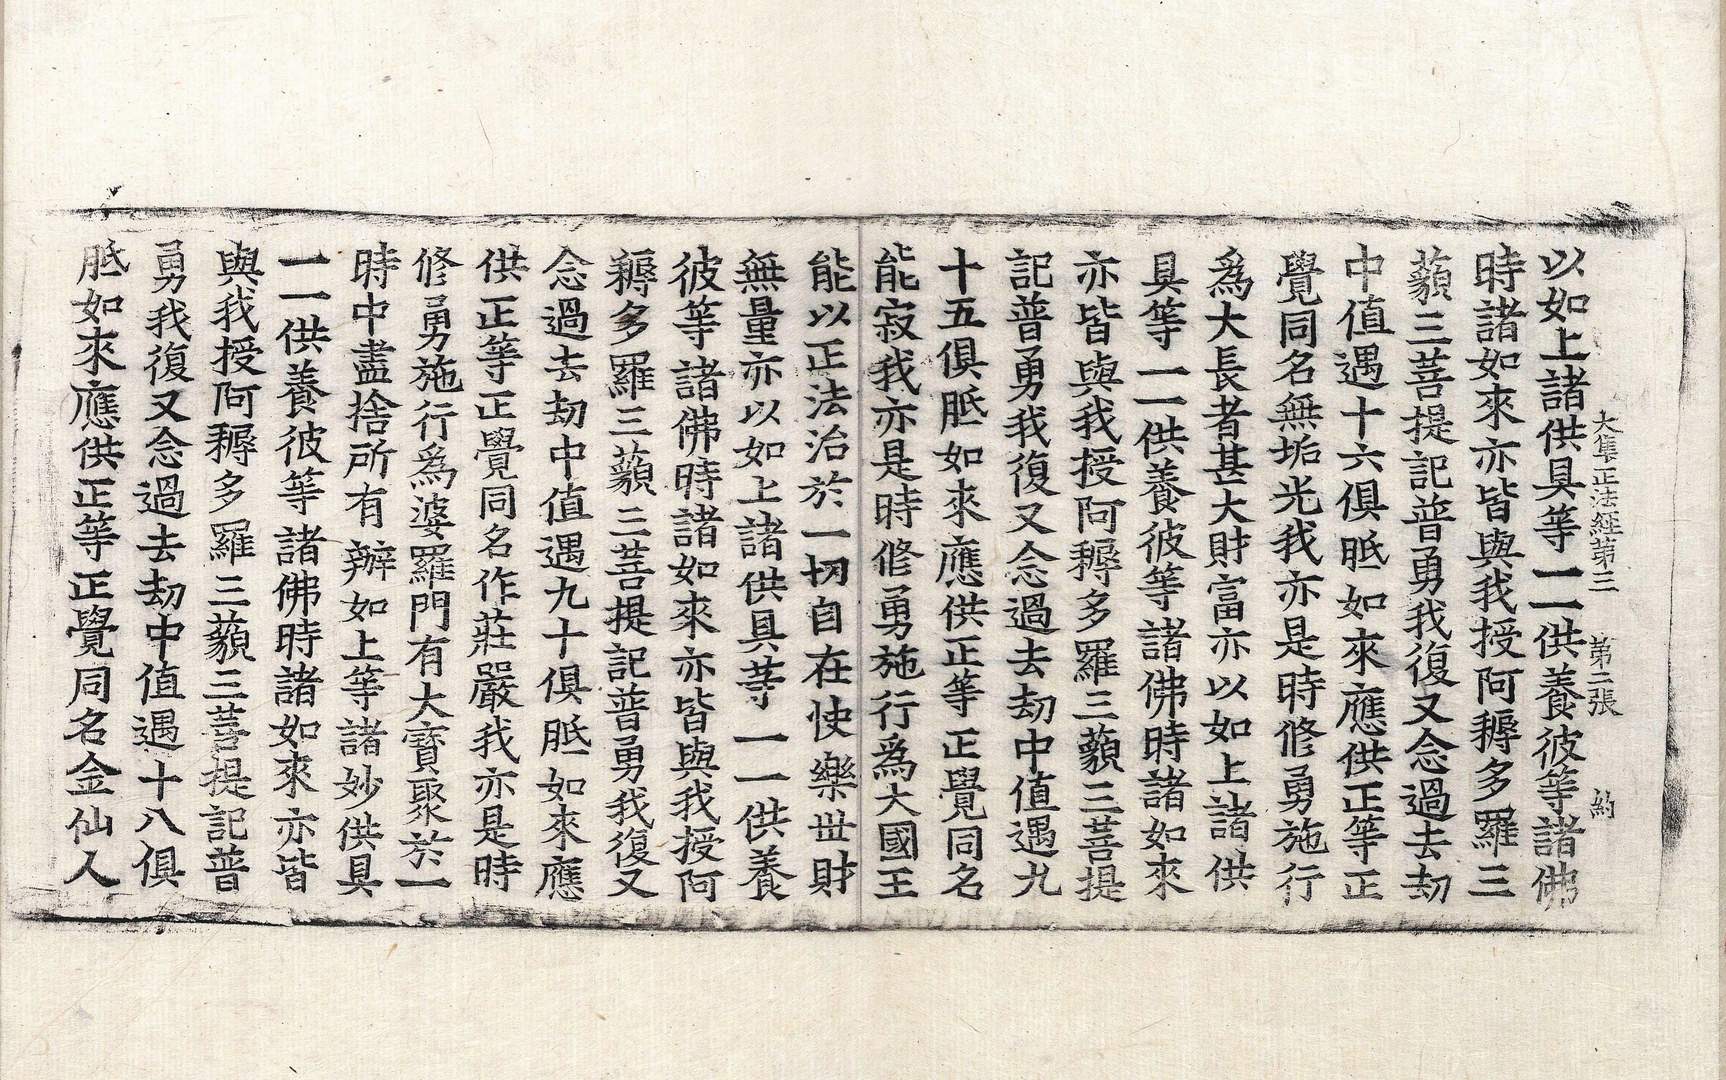 大集正法經第三　第二張　約
以如上諸供具等一一供養彼等諸佛
時諸如來亦皆與我授阿耨多羅三
藐三菩提記普勇我復又念過去劫
中值遇十六俱胝如來應供正等正
覺同名無垢光我亦是時修勇施行
爲大長者甚大財富亦以如上諸供
具等一一供養彼等諸佛時諸如來
亦皆與我授阿耨多羅三藐三菩提
記普勇我復又念過去劫中值遇九
十五俱胝如來應供正等正覺同名
能寂我亦是時修勇施行爲大國王
能以正法治於一切自在快樂世財
無量亦以如上諸供具等一一供養
彼等諸佛時諸如來亦皆與我授阿
耨多羅三藐三菩提記普勇我復又
念過去劫中值遇九十俱胝如來應
供正等正覺同名作莊嚴我亦是時
修勇施行爲婆羅門有大寶聚於一
時中盡捨所有辦如上等諸妙供具
一一供養彼等諸佛時諸如來亦皆
與我授阿耨多羅三藐三菩提記普
勇我復又念過去劫中值遇十八俱
胝如來應供正等正覺同名金仙人